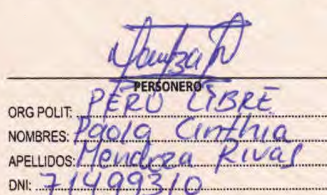 PERSONERO
ORG POLIT: PERÚ LIBRE
NOMBRES: Paola Cinthia
APELLIDOS: Mendoza Rivas
DNI: 71499310